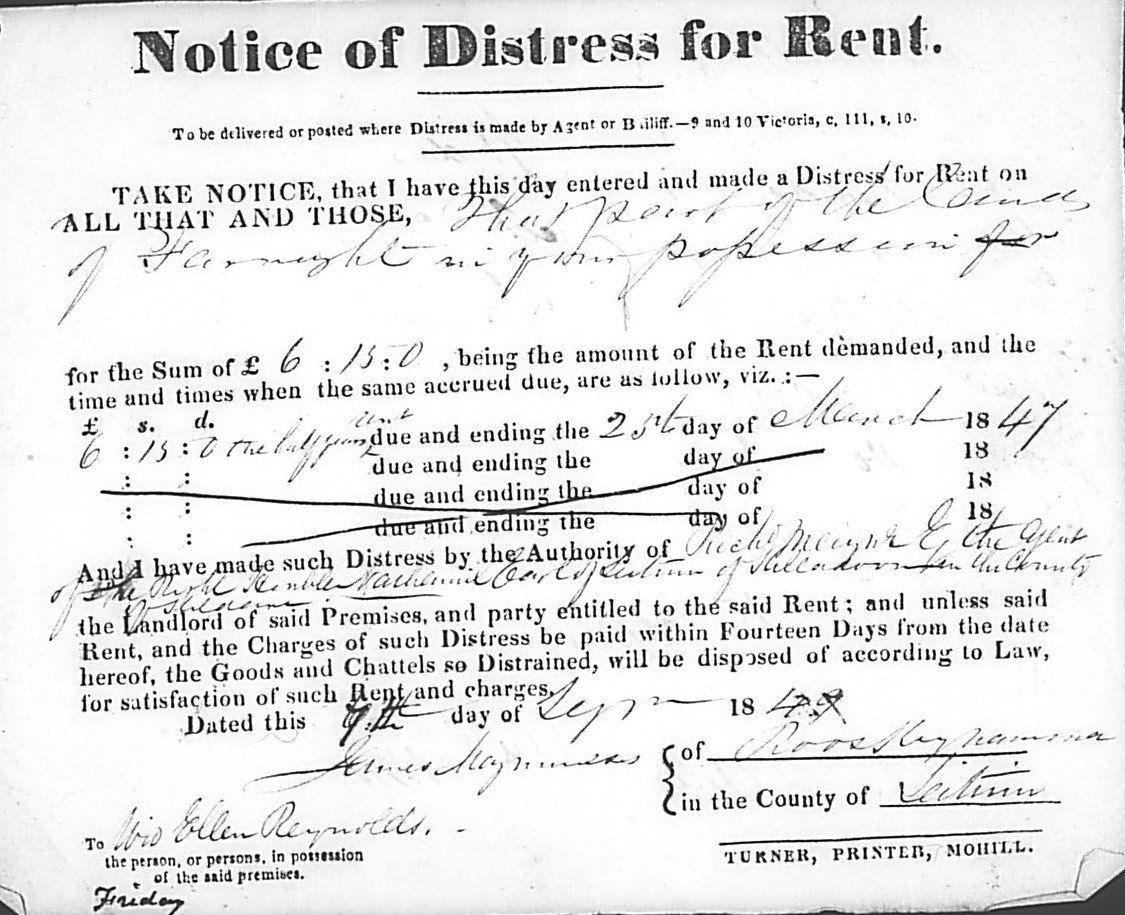 Notice of Distress for Rent.
To be delivered or posted where Distress is made by Agent or Bailiff.—9 and 10 Victoria, c, 111, s, 10.
TAKE NOTICE, that I have this day entered and made a Distress for Rent on
ALL THAT AND THOSE, That part of the Lands
of Farnaght in your possession for
for the Sum of £ 6 : 15 : 0 , being the amount of the Rent demanded, and the
time and times when the same accrued due, are as follow, viz. :—
£ s. d.
6 : 15 : 0 the half years rent due and ending the 25th day of March 1847
: : due and ending the day of 18
: : due and ending the day of 18
: : due and ending the day of 18
And I have made such Distress by the Authority of the Agent
of the Right Honble Nathaniel Earl of Leitrim of Killadoon in the County
of Kildare
the Landlord of said Premises, and party entitled to the said Rent ; and unless said
Rent, and the Charges of such Distress be paid within Fourteen Days from the date
hereof, the Goods and Chattels so Distrained, will be disposed of according to Law,
for satisfaction of such Rent and charges.
Dated this day of Sepr 18
James of
in the County of Leitrim
To Wid Ellen Reynolds.
the person, or persons, in possession
of the said premises.
TURNER, PRINTER, MOHILL.
Friday